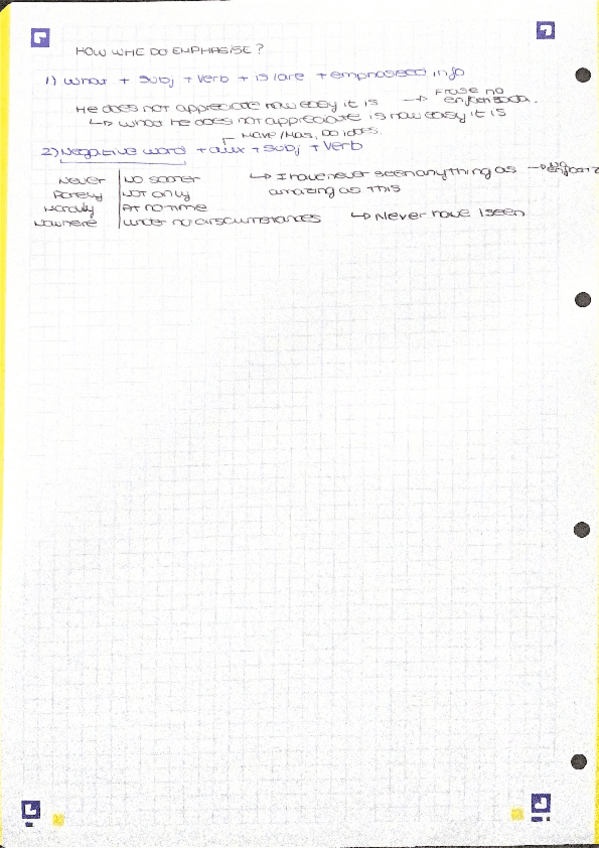 HOW WHE DO EMPHASISE?
1) What + subj + verb + is/are + emphasised info
He does not appreciate how easy it is → Frase no enfatizada.
↳ What he does not appreciate is how easy it is
Have/Has, Do/does.
2) Negative word + aux + subj + verb
Never | No sooner ↳ I have never seen anything as → No
Rarely | Not only amazing as this
Hardly | At no time
Nowhere | Under no circumstances ↳ Never have I seen